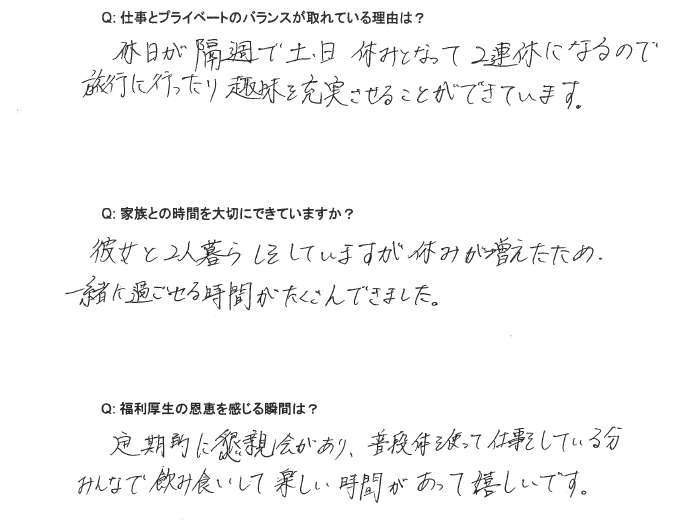 Q: 仕事とプライベートのバランスが取れている理由は？
休日が隔週で土・日 休みとなって 2連休になるので
旅行に行ったり 趣味を充実させることができています。
Q: 家族との時間を大切にできていますか？
彼女と2人暮らしをしていますが 休みが増えたため、
一緒に過ごせる時間がたくさんできました。
Q: 福利厚生の恩恵を感じる瞬間は？
定期的に懇親会があり、普段体を使って仕事をしている分
みんなで飲み食いして 楽しい時間があって嬉しいです。